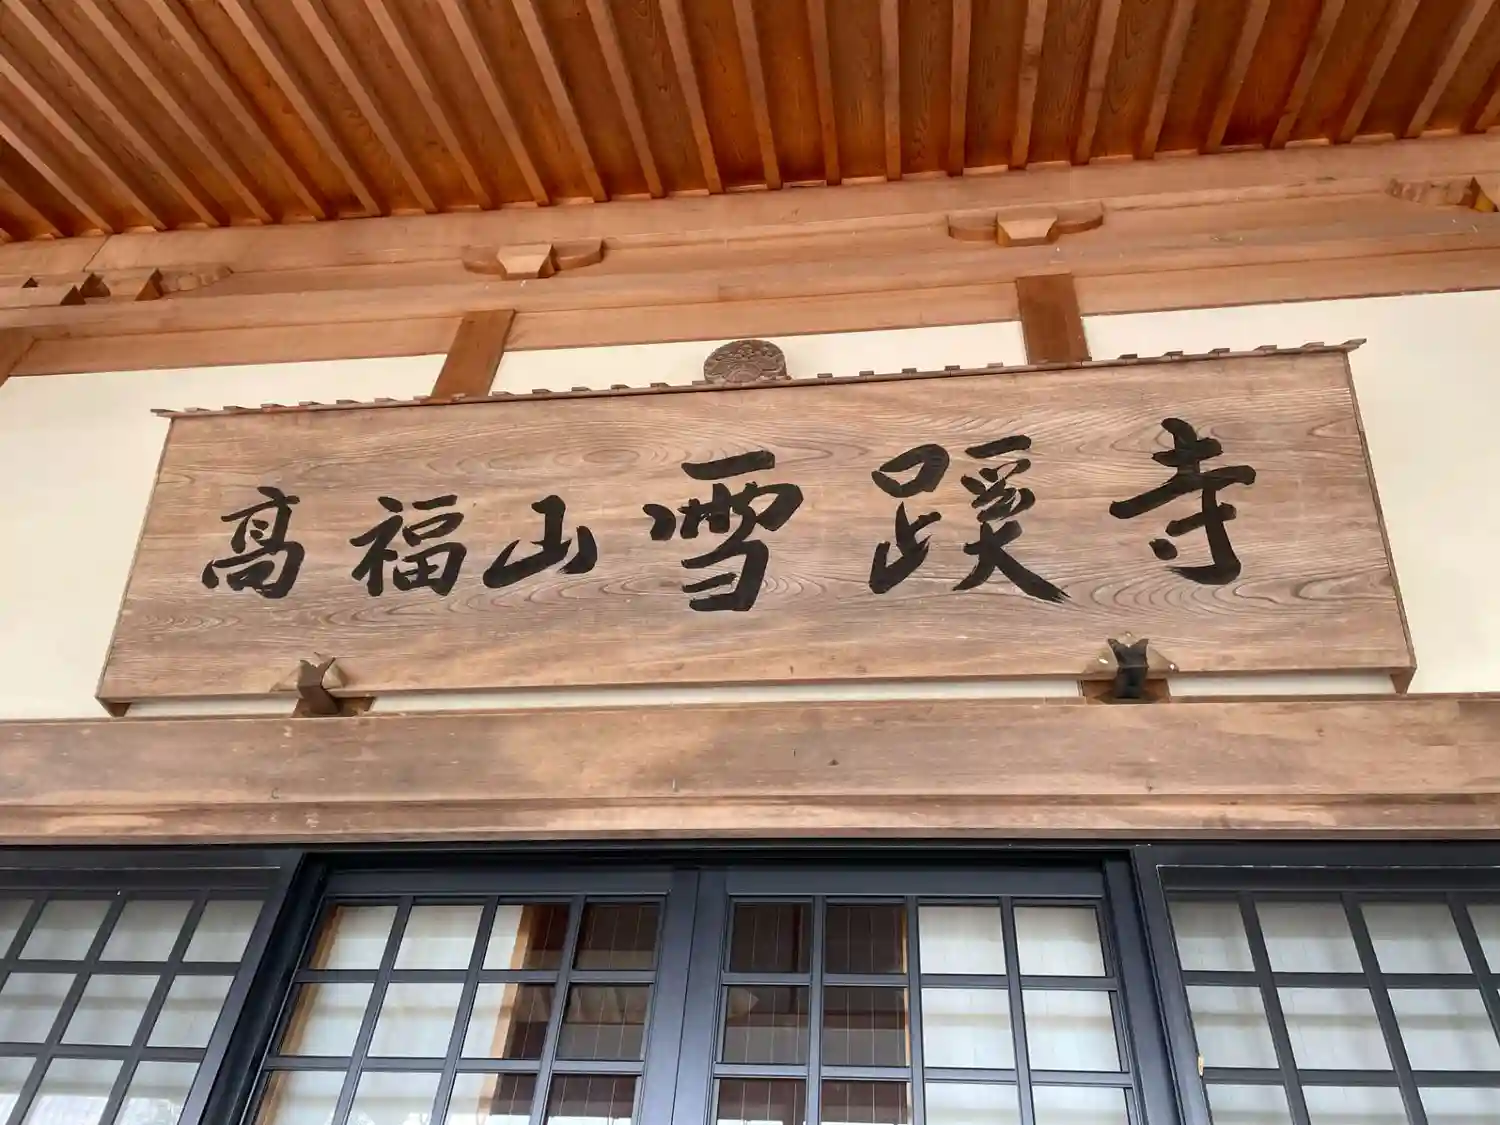 高福山雪蹊寺